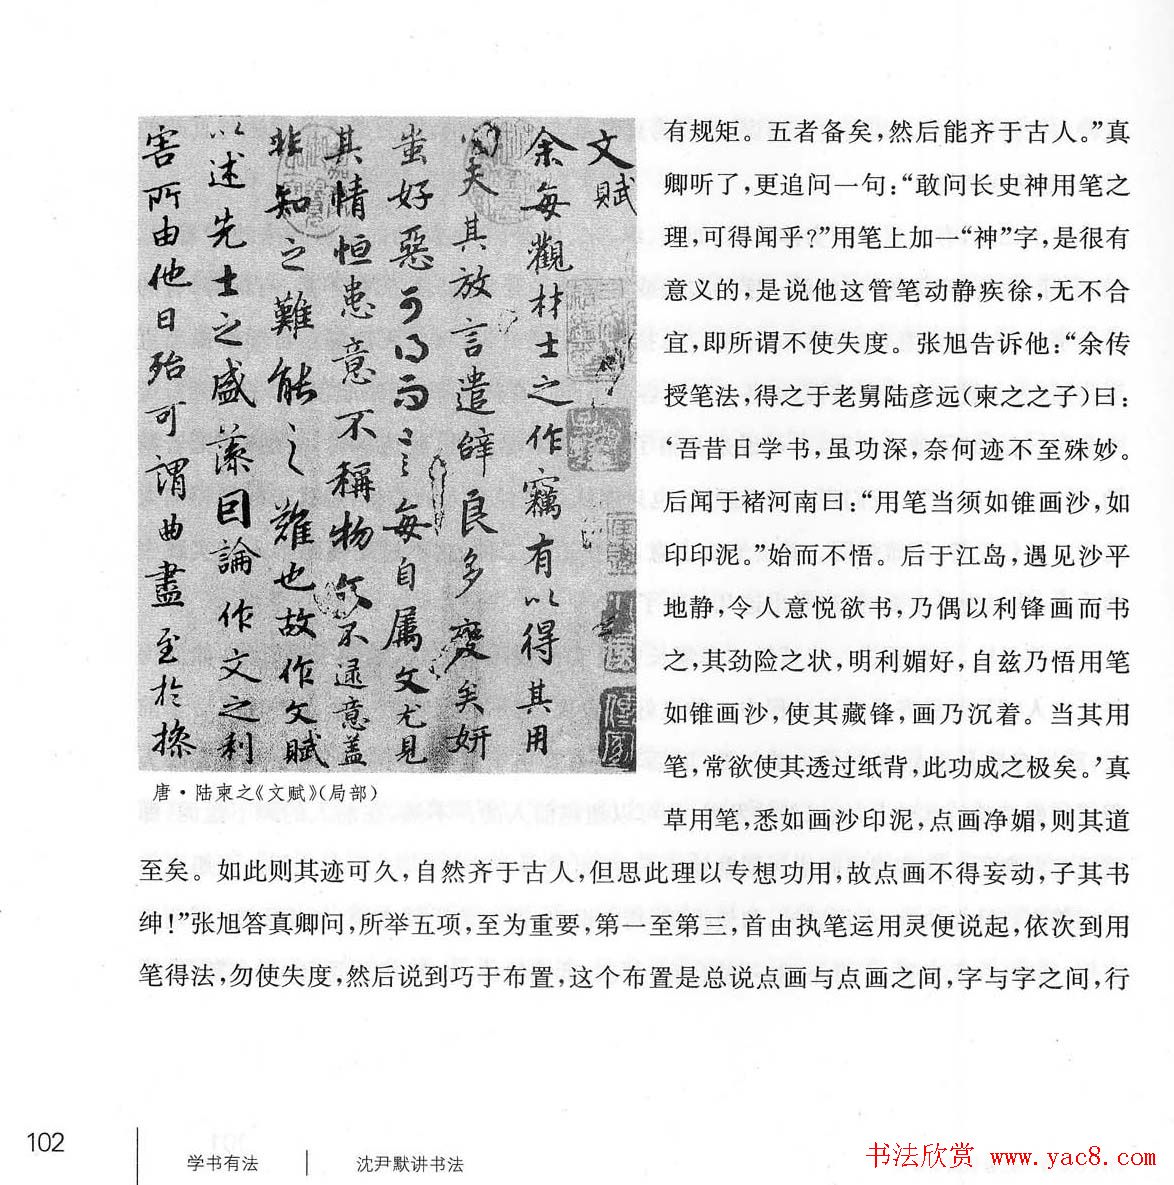 文賦
余每觀材士之作竊有以得其用
心夫其放言遣辭良多變矣妍
蚩好惡可得而言每自屬文尤見
其情恒患意不稱物文不逮意蓋
非知之難能之難也故作文賦
以述先士之盛藻因論作文之利
害所由他日殆可謂曲盡至於操
唐·陆柬之《文赋》(局部)
有规矩。五者备矣,然后能齐于古人。”真
卿听了,更追问一句:“敢问长史神用笔之
理,可得闻乎?”用笔上加一“神”字,是很有
意义的,是说他这管笔动静疾徐,无不合
宜,即所谓不使失度。张旭告诉他:“余传
授笔法,得之于老舅陆彦远(柬之之子)曰:
‘吾昔日学书,虽功深,奈何迹不至殊妙。
后闻于褚河南曰:“用笔当须如锥画沙,如
印印泥。”始而不悟。后于江岛,遇见沙平
地静,令人意悦欲书,乃偶以利锋画而书
之,其劲险之状,明利媚好,自兹乃悟用笔
如锥画沙,使其藏锋,画乃沉着。当其用
笔,常欲使其透过纸背,此功成之极矣。’真
草用笔,悉如画沙印泥,点画净媚,则其道
至矣。如此则其迹可久,自然齐于古人,但思此理以专想功用,故点画不得妄动,子其书
绅!”张旭答真卿问,所举五项,至为重要,第一至第三,首由执笔运用灵便说起,依次到用
笔得法,勿使失度,然后说到巧于布置,这个布置是总说点画与点画之间,字与字之间,行
102
学书有法 | 沈尹默讲书法
书法欣赏 www.yac8.com